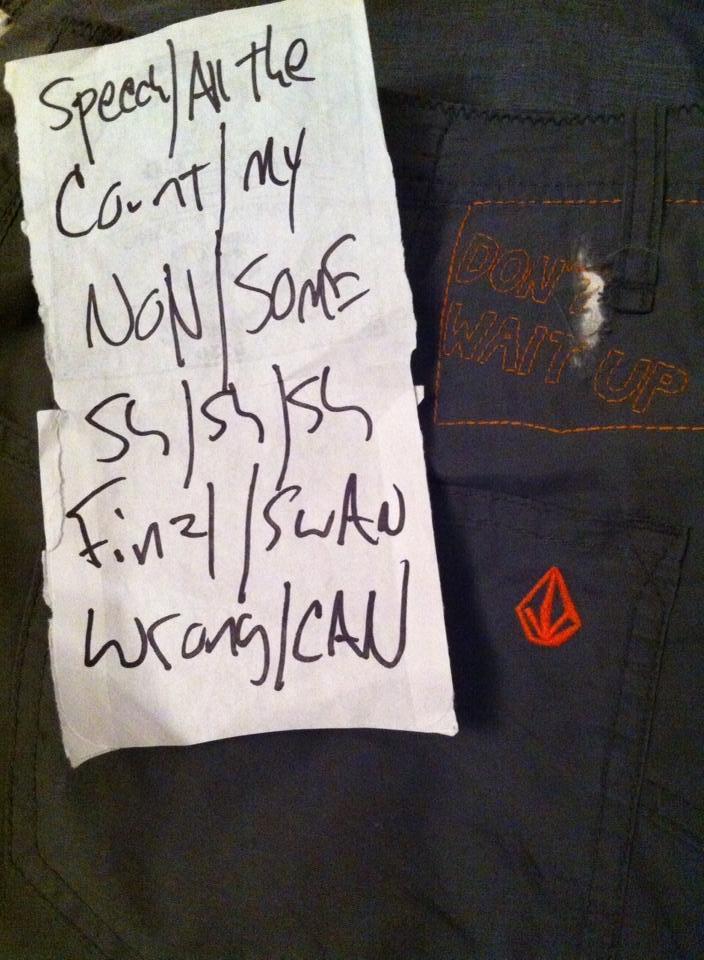 Speech/All the
Count/My
NON/SOME
Sh/Sh/Sh
Final/SWAN
Wrong/CAN
DON'T
WAIT UP